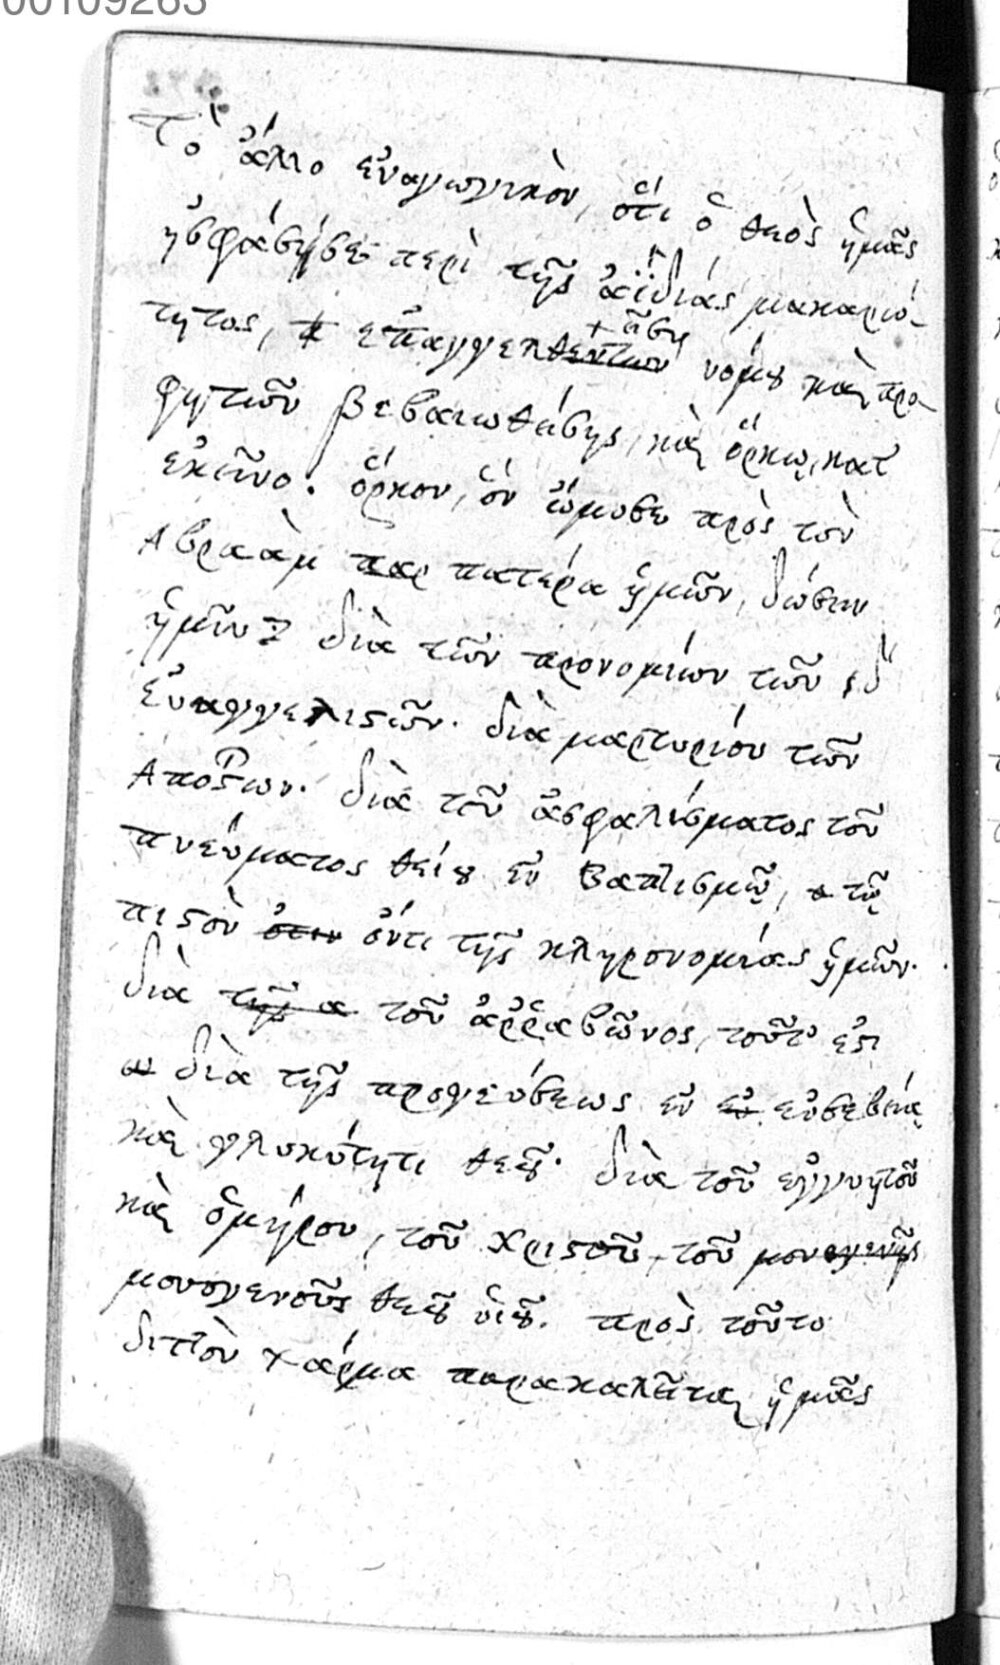 00109263
Τὸ ἄλλο εὐαγωγικὸν, ὅτι ὁ θεὸς ἡμᾶς
ἠσφάλισε περὶ τῆς ἀϊδιάς μακαριό-
τητος, ἐπαγγελθεντων νόμου καὶ προ-
φητῶν βεβαιωθείσης, καὶ ὅρκῳ, κατ
ἐκεῖνο. ὅρκον, ὃν ὤμοσεν πρὸς τὸν
Αβραὰμ παρ πατέρα ἡμῶν, δώσειν
ἡμῖν διὰ τῶν προνομίων τῶν
Εὐαγγελιστῶν. διὰ μαρτυρίου τῶν
Αποστων. διὰ τοῦ ἀσφαλίσματος τοῦ
πνεύματος θείου ἐν βαπτισμῷ, τῷ
πιστὸν ὄντι τῆς κληρονομίας ἡμῶν.
διὰ τῆς α τοῦ ἀῤῥαβῶνος, τοῦτ' ἐστι
διὰ τῆς προγεύσεως ἐν ἐν εὐσεβείᾳ
καὶ γλυκύτητι θεοῦ. διὰ τοῦ ἐγγυητοῦ
καὶ ὁμήρου, τοῦ Χριστοῦ, τοῦ μονογενῆς
μονογενοῦς θεοῦ ὑιοῦ. πρὸς τοῦτο
διττὸν χάρμα παρακαλεῖται ἡμᾶς